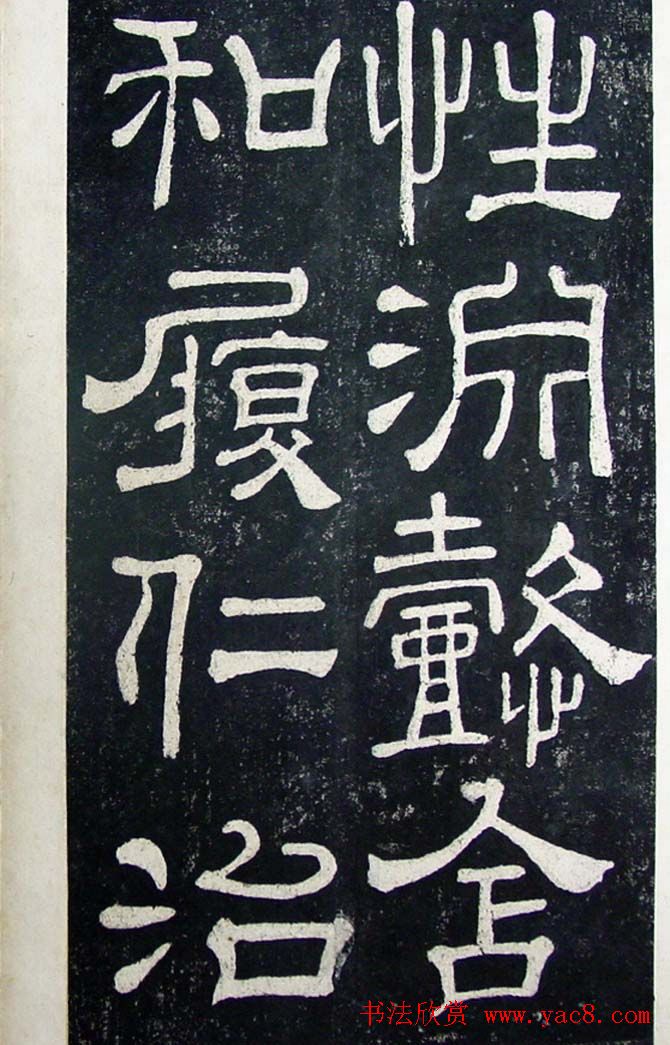 性淵懿含
和履仁治
书法欣赏 www.yac8.com